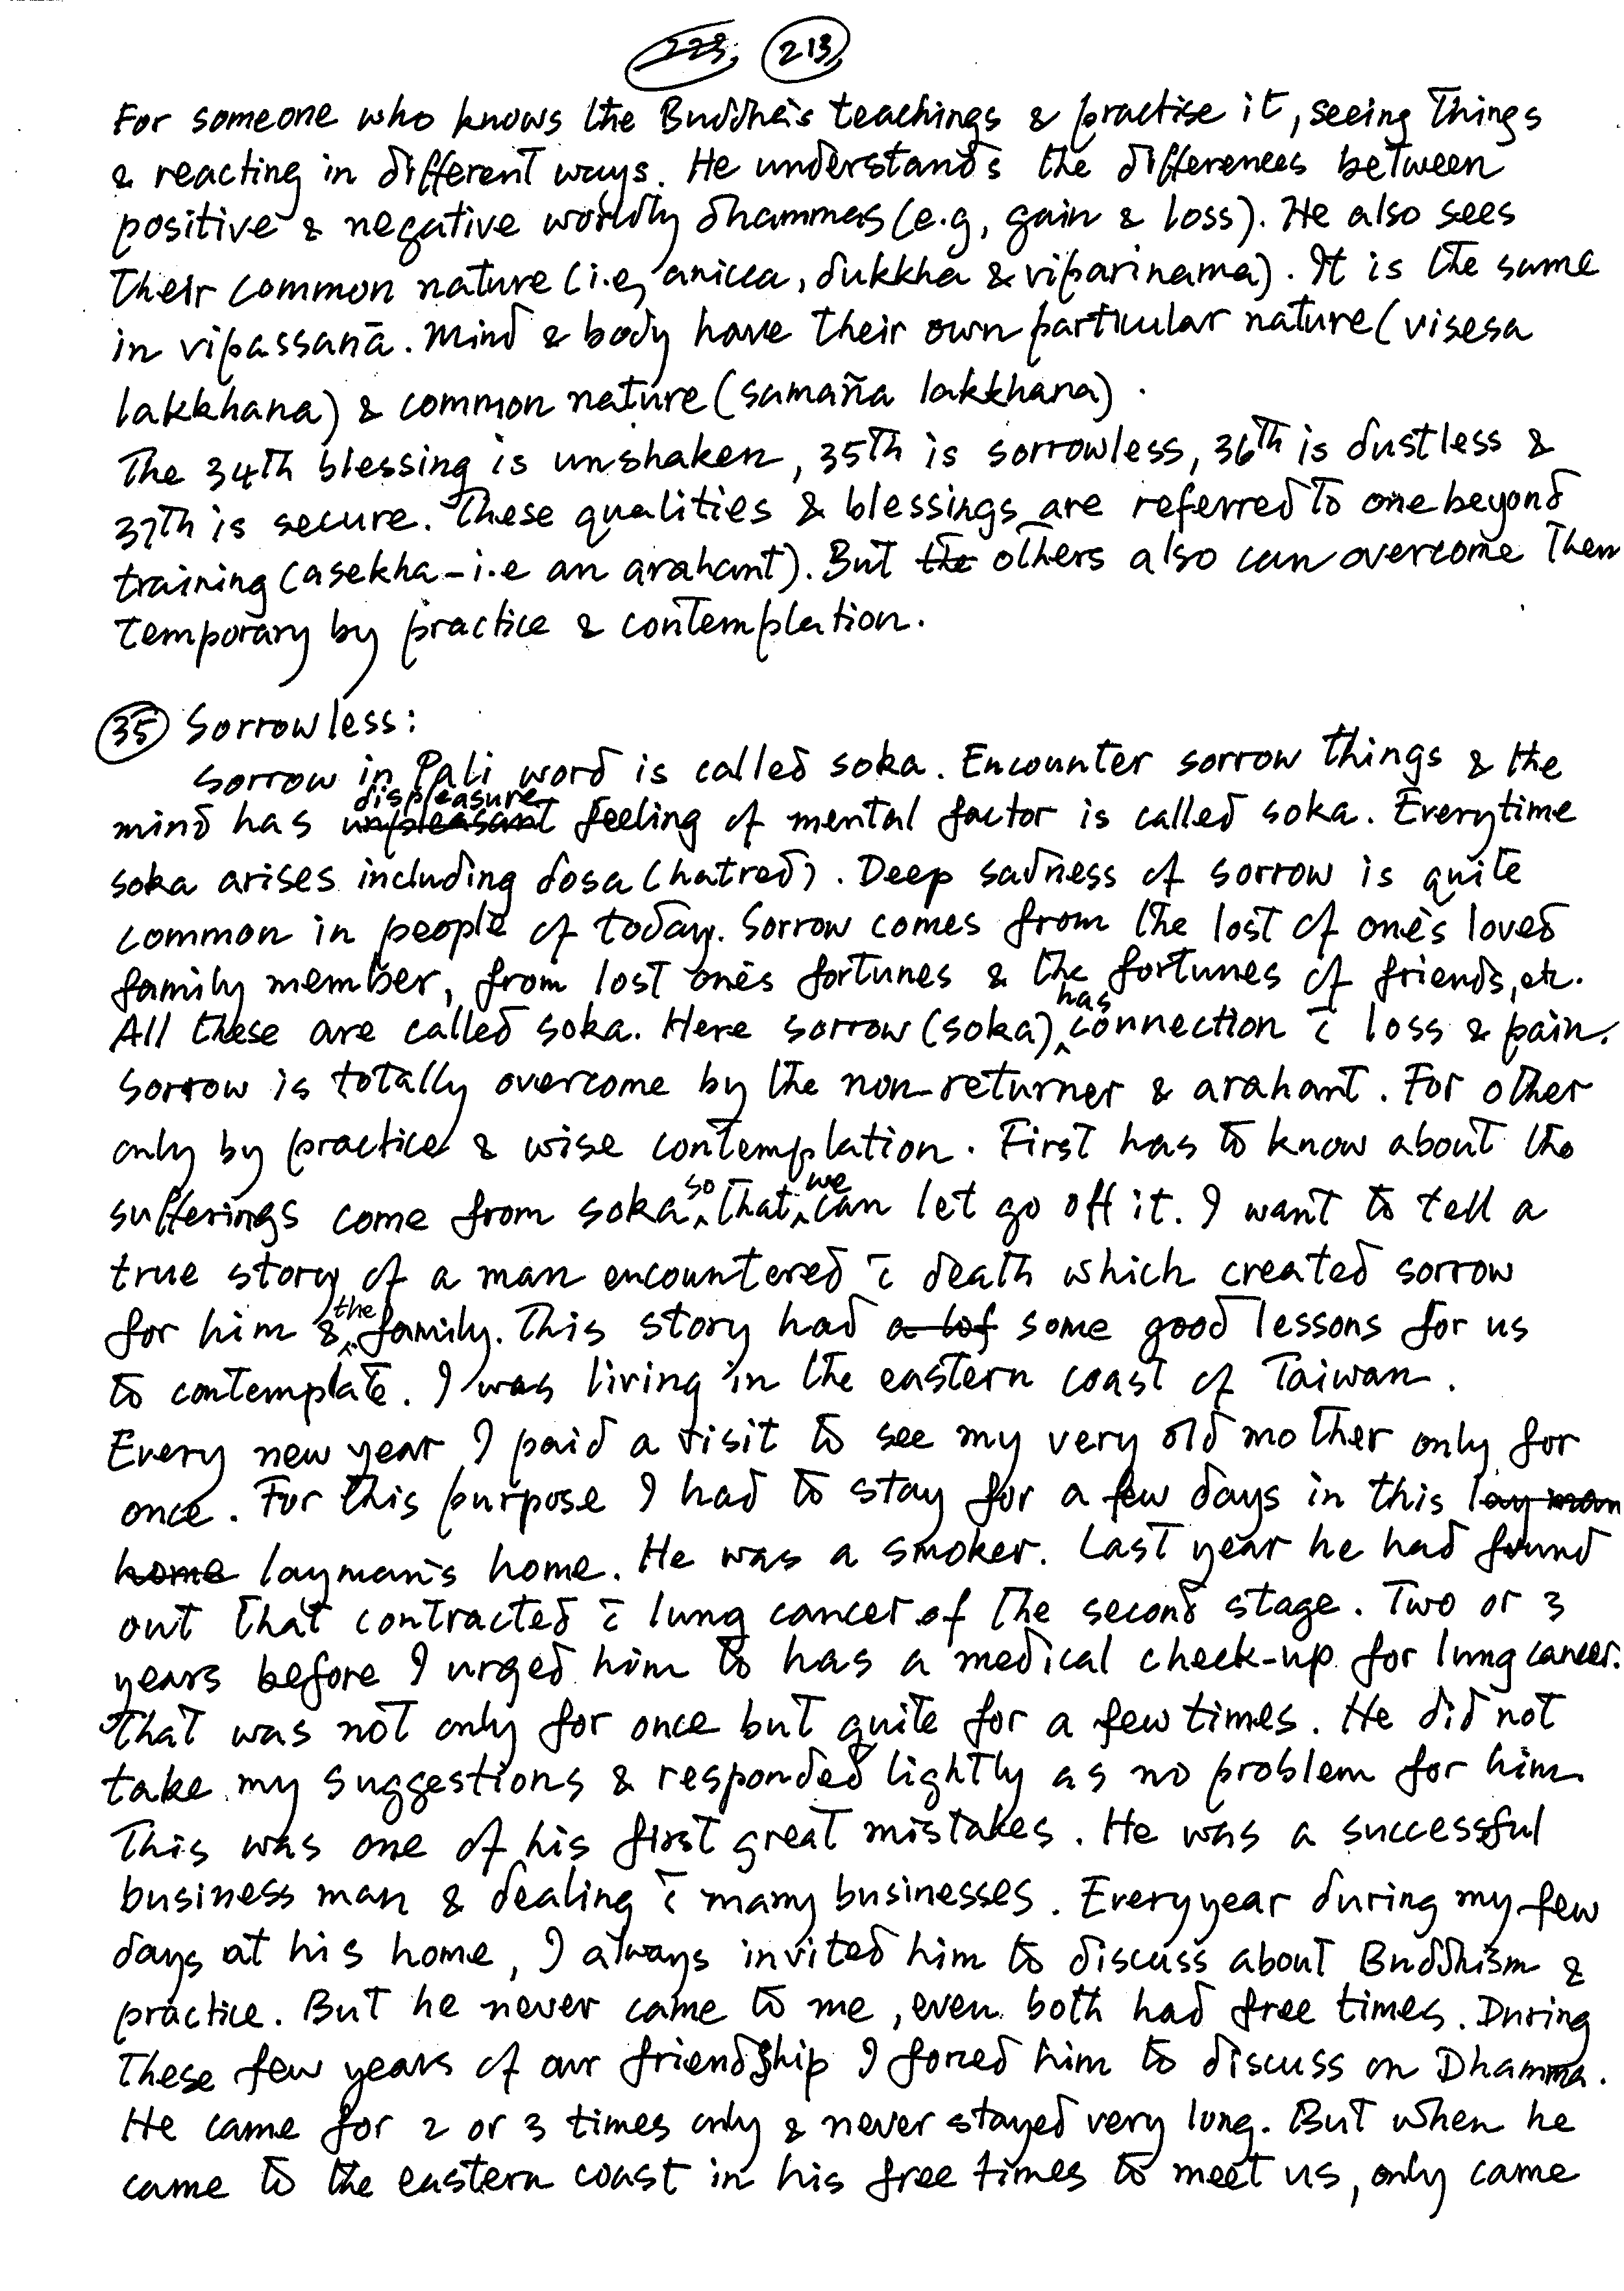 223, 213,
For someone who knows the Buddha's teachings & practise it, seeing things
& reacting in different ways. He understands the differences between
positive & negative worldly dhammas (e.g, gain & loss). He also sees
their common nature (i.e, anicca, dukkha & viparinama). It is the same
in vipassanā. Mind & body have their own particular nature (visesa
lakkhana) & common nature (samaña lakkhana).
The 34th blessing is unshaken, 35th is sorrowless, 36th is dustless &
37th is secure. These qualities & blessings are referred to one beyond
training (asekha – i.e an arahant). But the others also can overcome them
temporary by practice & contemplation.
35 Sorrowless:
Sorrow in Pali word is called soka. Encounter sorrow things & the
displeasure
mind has unpleasant feeling of mental factor is called soka. Everytime
soka arises including dosa (hatred). Deep sadness of sorrow is quite
common in people of today. Sorrow comes from the lost of one's loved
family member, from lost one's fortunes & the fortunes of friends, etc.
has
All these are called soka. Here sorrow (soka) ^ connection c̄ loss & pain.
Sorrow is totally overcome by the non-returner & arahant. For other
only by practice & wise contemplation. First has to know about the
so we
sufferings come from soka ^ that ^ can let go off it. I want to tell a
true story of a man encountered c̄ death which created sorrow
the
for him & ^ family. This story had a lot some good lessons for us
to contemplate. I was living in the eastern coast of Taiwan.
Every new year I paid a visit to see my very old mother only for
once. For this purpose I had to stay for a few days in this lay man
home layman's home. He was a smoker. Last year he had found
out that contracted c̄ lung cancer of the second stage. Two or 3
years before I urged him to has a medical check-up for lung cancer.
That was not only for once but quite for a few times. He did not
take my suggestions & responded lightly as no problem for him.
This was one of his first great mistakes. He was a successful
business man & dealing c̄ many businesses. Every year during my few
days at his home, I always invited him to discuss about Buddhism &
practice. But he never came to me, even both had free times. During
these few years of our friendship I forced him to discuss on Dhamma.
He came for 2 or 3 times only & never stayed very long. But when he
came to the eastern coast in his free times to meet us, only came